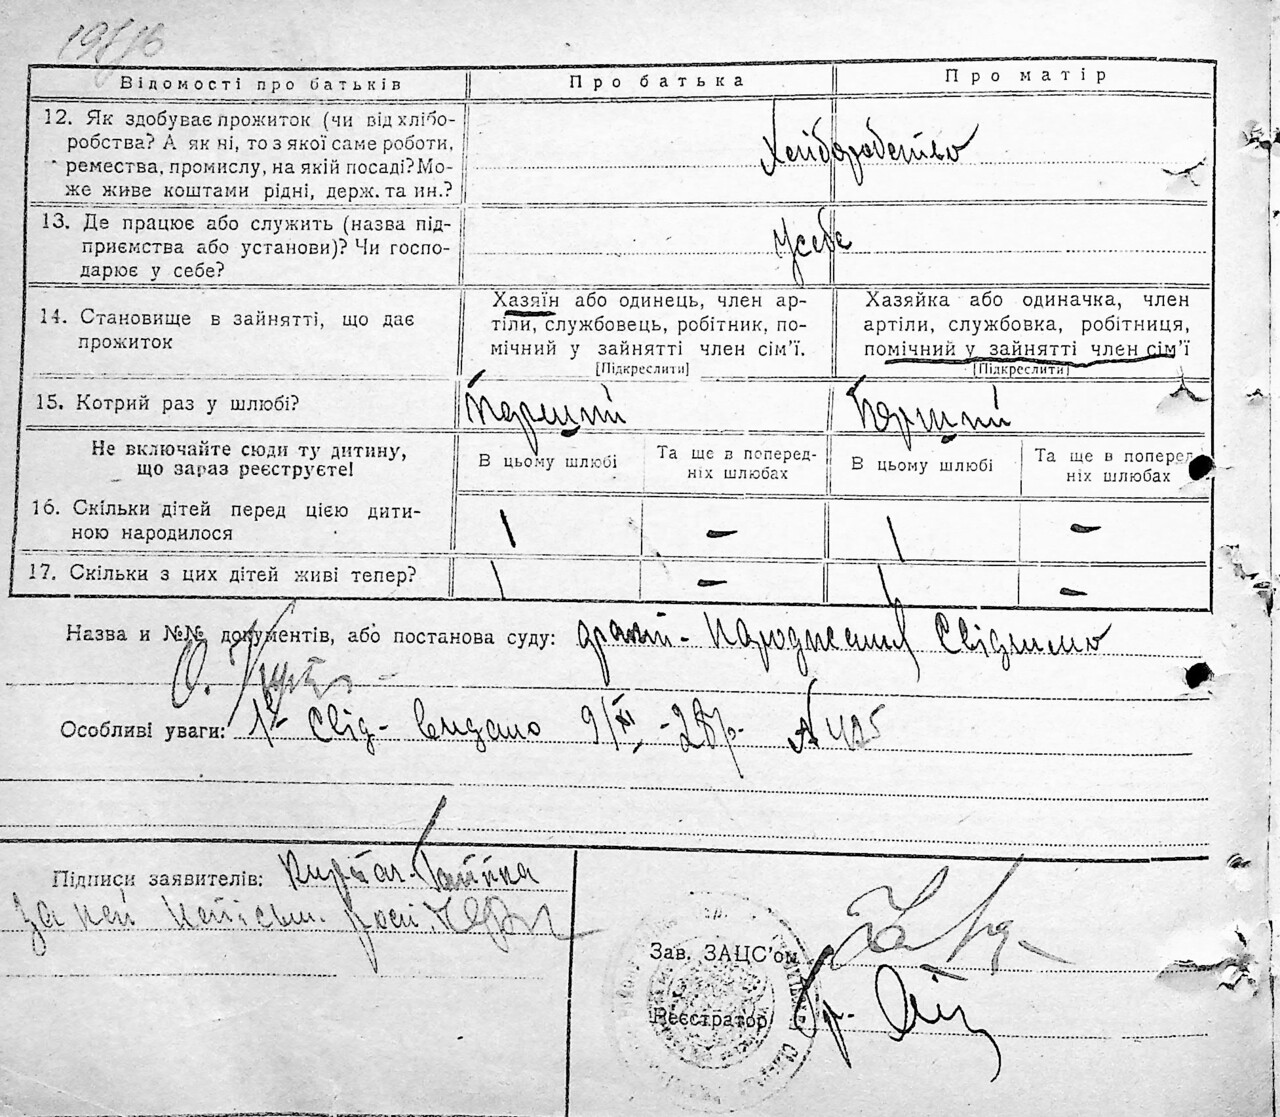 Відомості про батьків Про батька Про матір
12. Як здобуває прожиток (чи від хлібо-
робства? А як ні, то з якої саме роботи,
ремества, промислу, на якій посаді? Мо-
же живе коштами рідні, держ. та ин.?
Хліборобство
13. Де працює або служить (назва під-
приємства або установи)? Чи госпо-
дарює у себе?
У себе
14. Становище в зайнятті, що дає
прожиток
Хазяїн або одинець, член ар-
тіли, службовець, робітник, по-
мічний у зайнятті член сім'ї.
[Підкреслити]
Хазяйка або одиначка, член
артіли, службовка, робітниця,
помічний у зайнятті член сім'ї
[Підкреслити]
15. Котрий раз у шлюбі? Перший Перший
Не включайте сюди ту дитину,
що зараз реєструєте!
В цьому шлюбі
Та ще в поперед-
ніх шлюбах
В цьому шлюбі
Та ще в поперед
ніх шлюбах
16. Скільки дітей перед цією дити-
ною народилося
1 – 1 –
17. Скільки з цих дітей живі тепер? 1 – 1 –
Назва и №№ документів, або постанова суду: народження
Особливі уваги: свід. видано 9/XI -28р. № 425
Підписи заявителів:
За
Зав. ЗАЦС'ом
Реєстратор